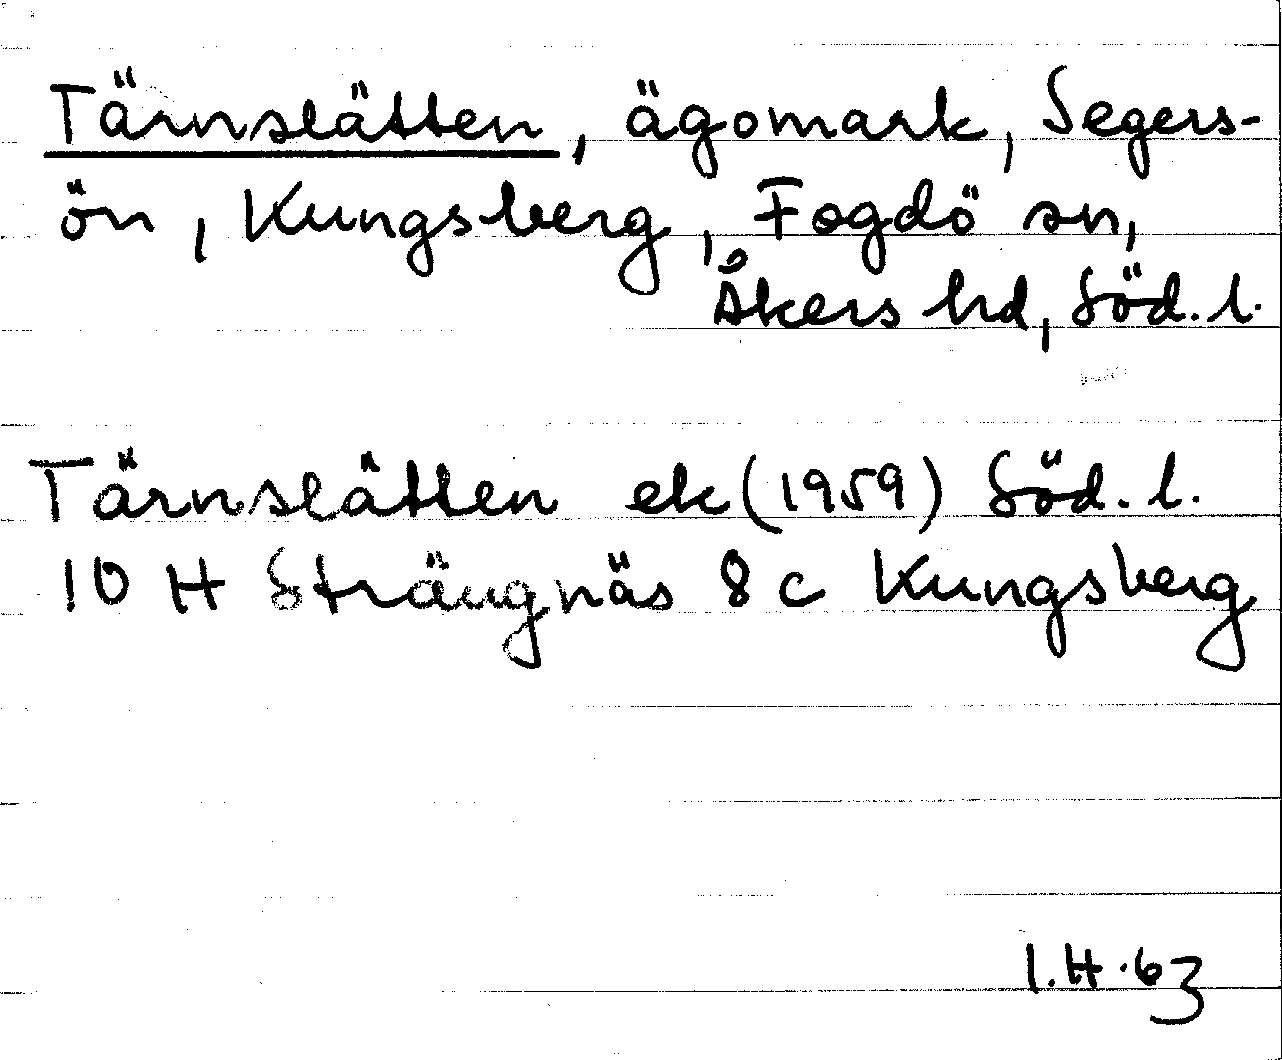 Tärnslätten, ägomark, Segers-
ön, Kungsberg, Fogdö sn,
Åkers hd, Söd. l.
Tärnslätten ek (1959) Söd. l.
10 H Strängnäs 8 c Kungsberg
I.H.63